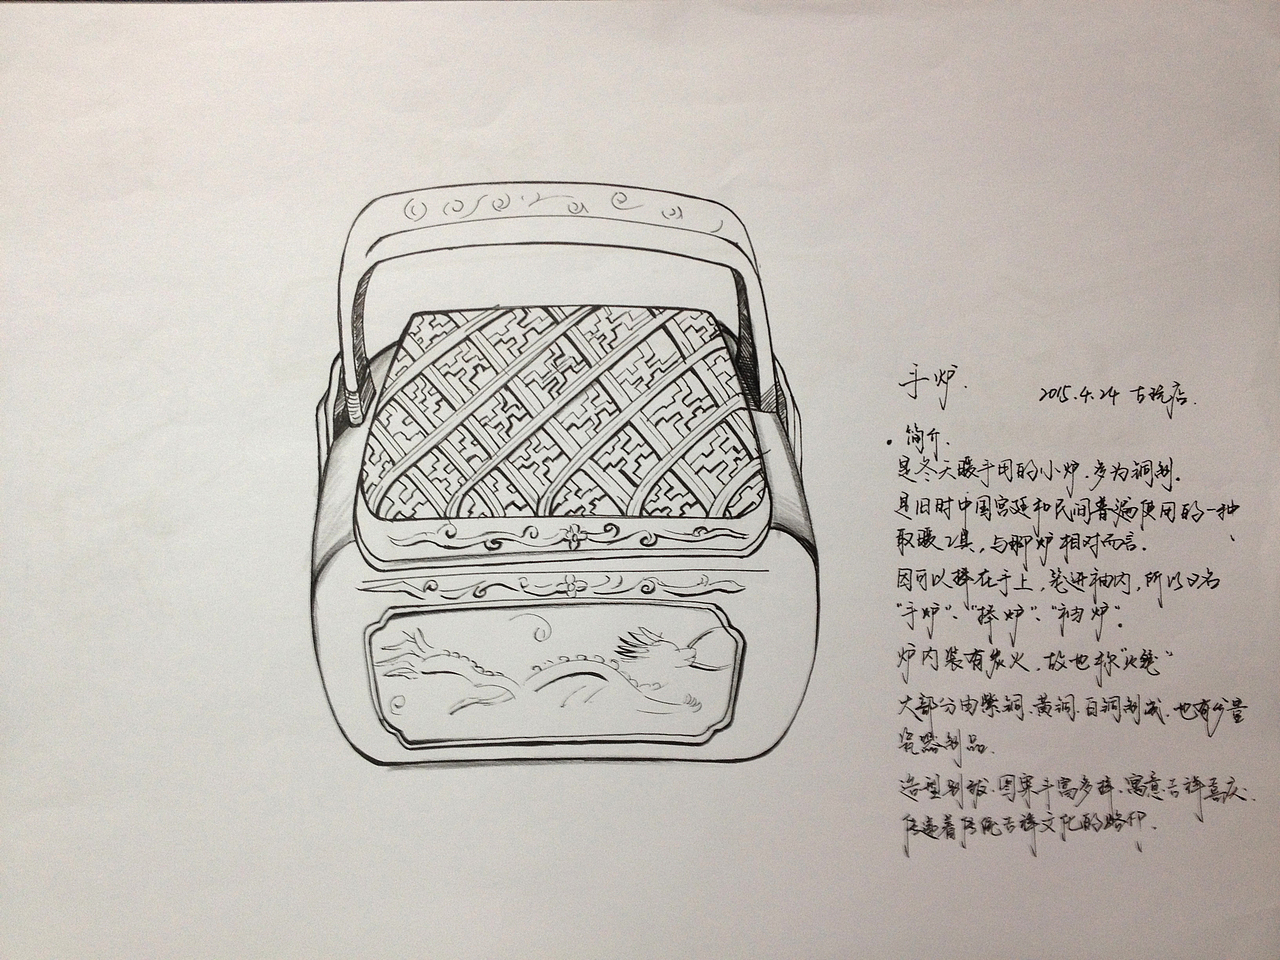 手炉.
2015.4.24 古玩店.
• 简介.
是冬天暖手用的小炉.多为铜制.
是旧时中国宫廷和民间普遍使用的一种
取暖工具,与脚炉相对而言.
因可以捧在手上,笼进袖内,所以又名
"手炉"、"捧炉"、"袖炉"。
炉内装有炭火.故也称"火笼"
大部分由紫铜.黄铜.白铜制成.也有少量
瓷器制品.
造型别致.图案丰富多样.寓意吉祥喜庆.
传递着传统吉祥文化的烙印.